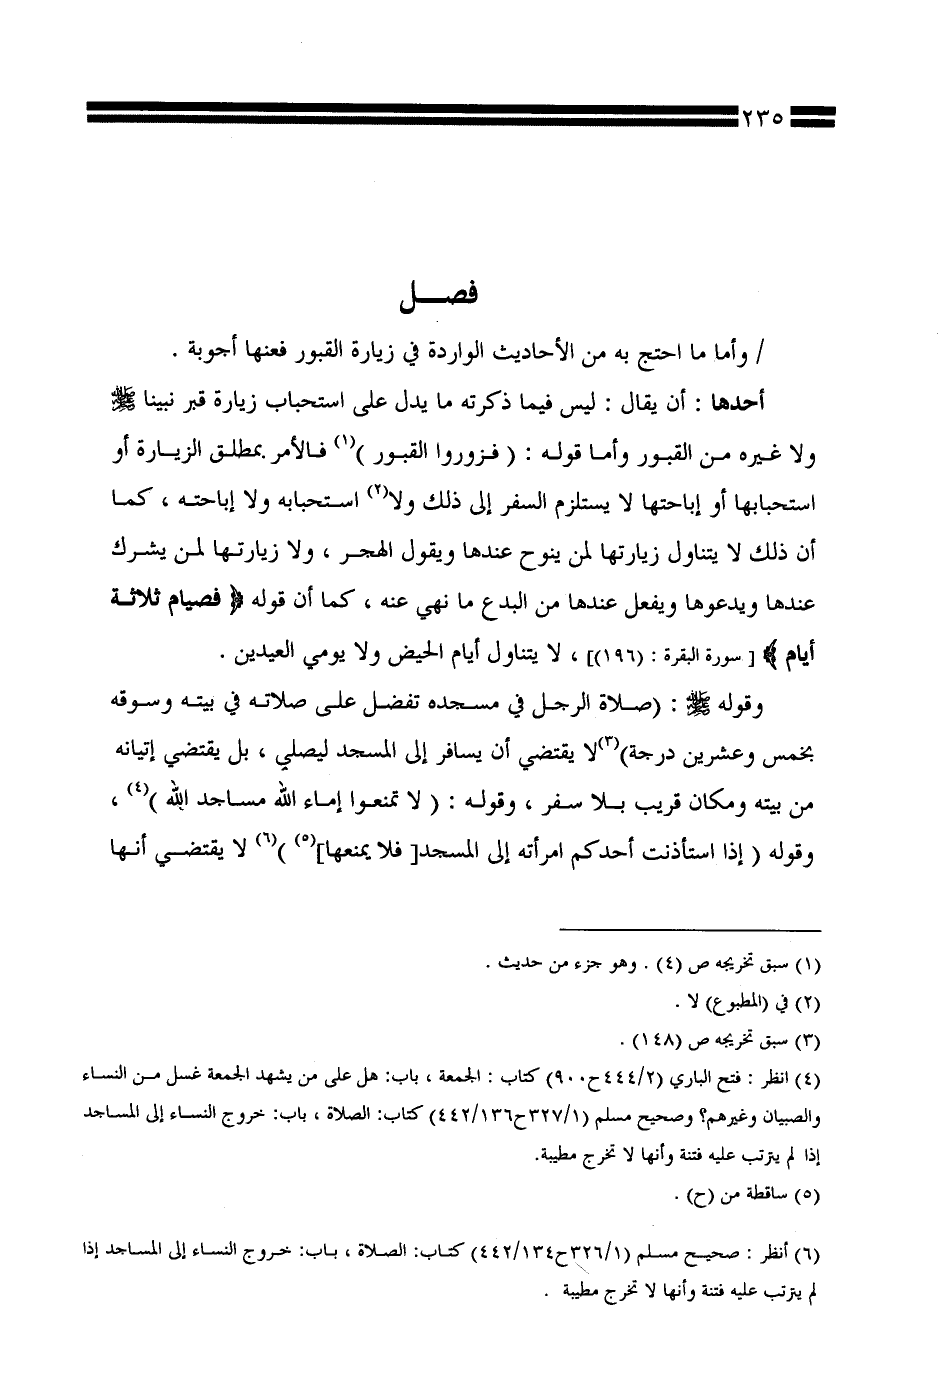 ٢٣٥
فصـــل
/ وأما ما احتج به من الأحاديث الواردة في زيارة القبور فعنها أجوبة .
أحدها : أن يقال : ليس فيما ذكرته ما يدل على استحباب زيارة قبر نبينا ﷺ
ولا غيره من القبور وأما قوله : ( فزوروا القبور )(١) فالأمر بمطلق الزيارة أو
استحبابها أو إباحتها لا يستلزم السفر إلى ذلك ولا(٢) استحبابه ولا إباحته ، كما
أن ذلك لا يتناول زيارتها لمن ينوح عندها ويقول الهجر ، ولا زيارتها لمن يشرك
عندها ويدعوها ويفعل عندها من البدع ما نهي عنه ، كما أن قوله ﴿ فصيام ثلاثة
أيام ﴾ [ سورة البقرة : (١٩٦)] ، لا يتناول أيام الحيض ولا يومي العيدين .
وقوله ﷺ : (صلاة الرجل في مسجده تفضل على صلاته في بيته وسوقه
بخمس وعشرين درجة)(٣)لا يقتضي أن يسافر إلى المسجد ليصلي ، بل يقتضي إتيانه
من بيته ومكان قريب بلا سفر ، وقوله : ( لا تمنعوا إماء الله مساجد الله )(٤) ،
وقوله ( إذا استأذنت أحدكم امرأته إلى المسجد[ فلا يمنعها](٥) )(٦) لا يقتضي أنها
(١) سبق تخريجه ص (٤) . وهو جزء من حديث .
(٢) في (المطبوع) لا .
(٣) سبق تخريجه ص (١٤٨) .
(٤) انظر : فتح الباري (٤٤٤/٢ح٩٠٠) كتاب : الجمعة ، باب: هل على من يشهد الجمعة غسل من النساء
والصبيان وغيرهم؟ وصحيح مسلم (٣٢٧/١ح٤٤٢/١٣٦) كتاب: الصلاة ، باب: خروج النساء إلى المساجد
إذا لم يترتب عليه فتنة وأنها لا تخرج مطيبة.
(٥) ساقطة من (ح) .
(٦) أنظر : صحيح مسلم (٣٢٦/١ح٤٤٢/١٣٤) كتاب: الصلاة ، باب: خروج النساء إلى المساجد إذا
لم يترتب عليه فتنة وأنها لا تخرج مطيبة .